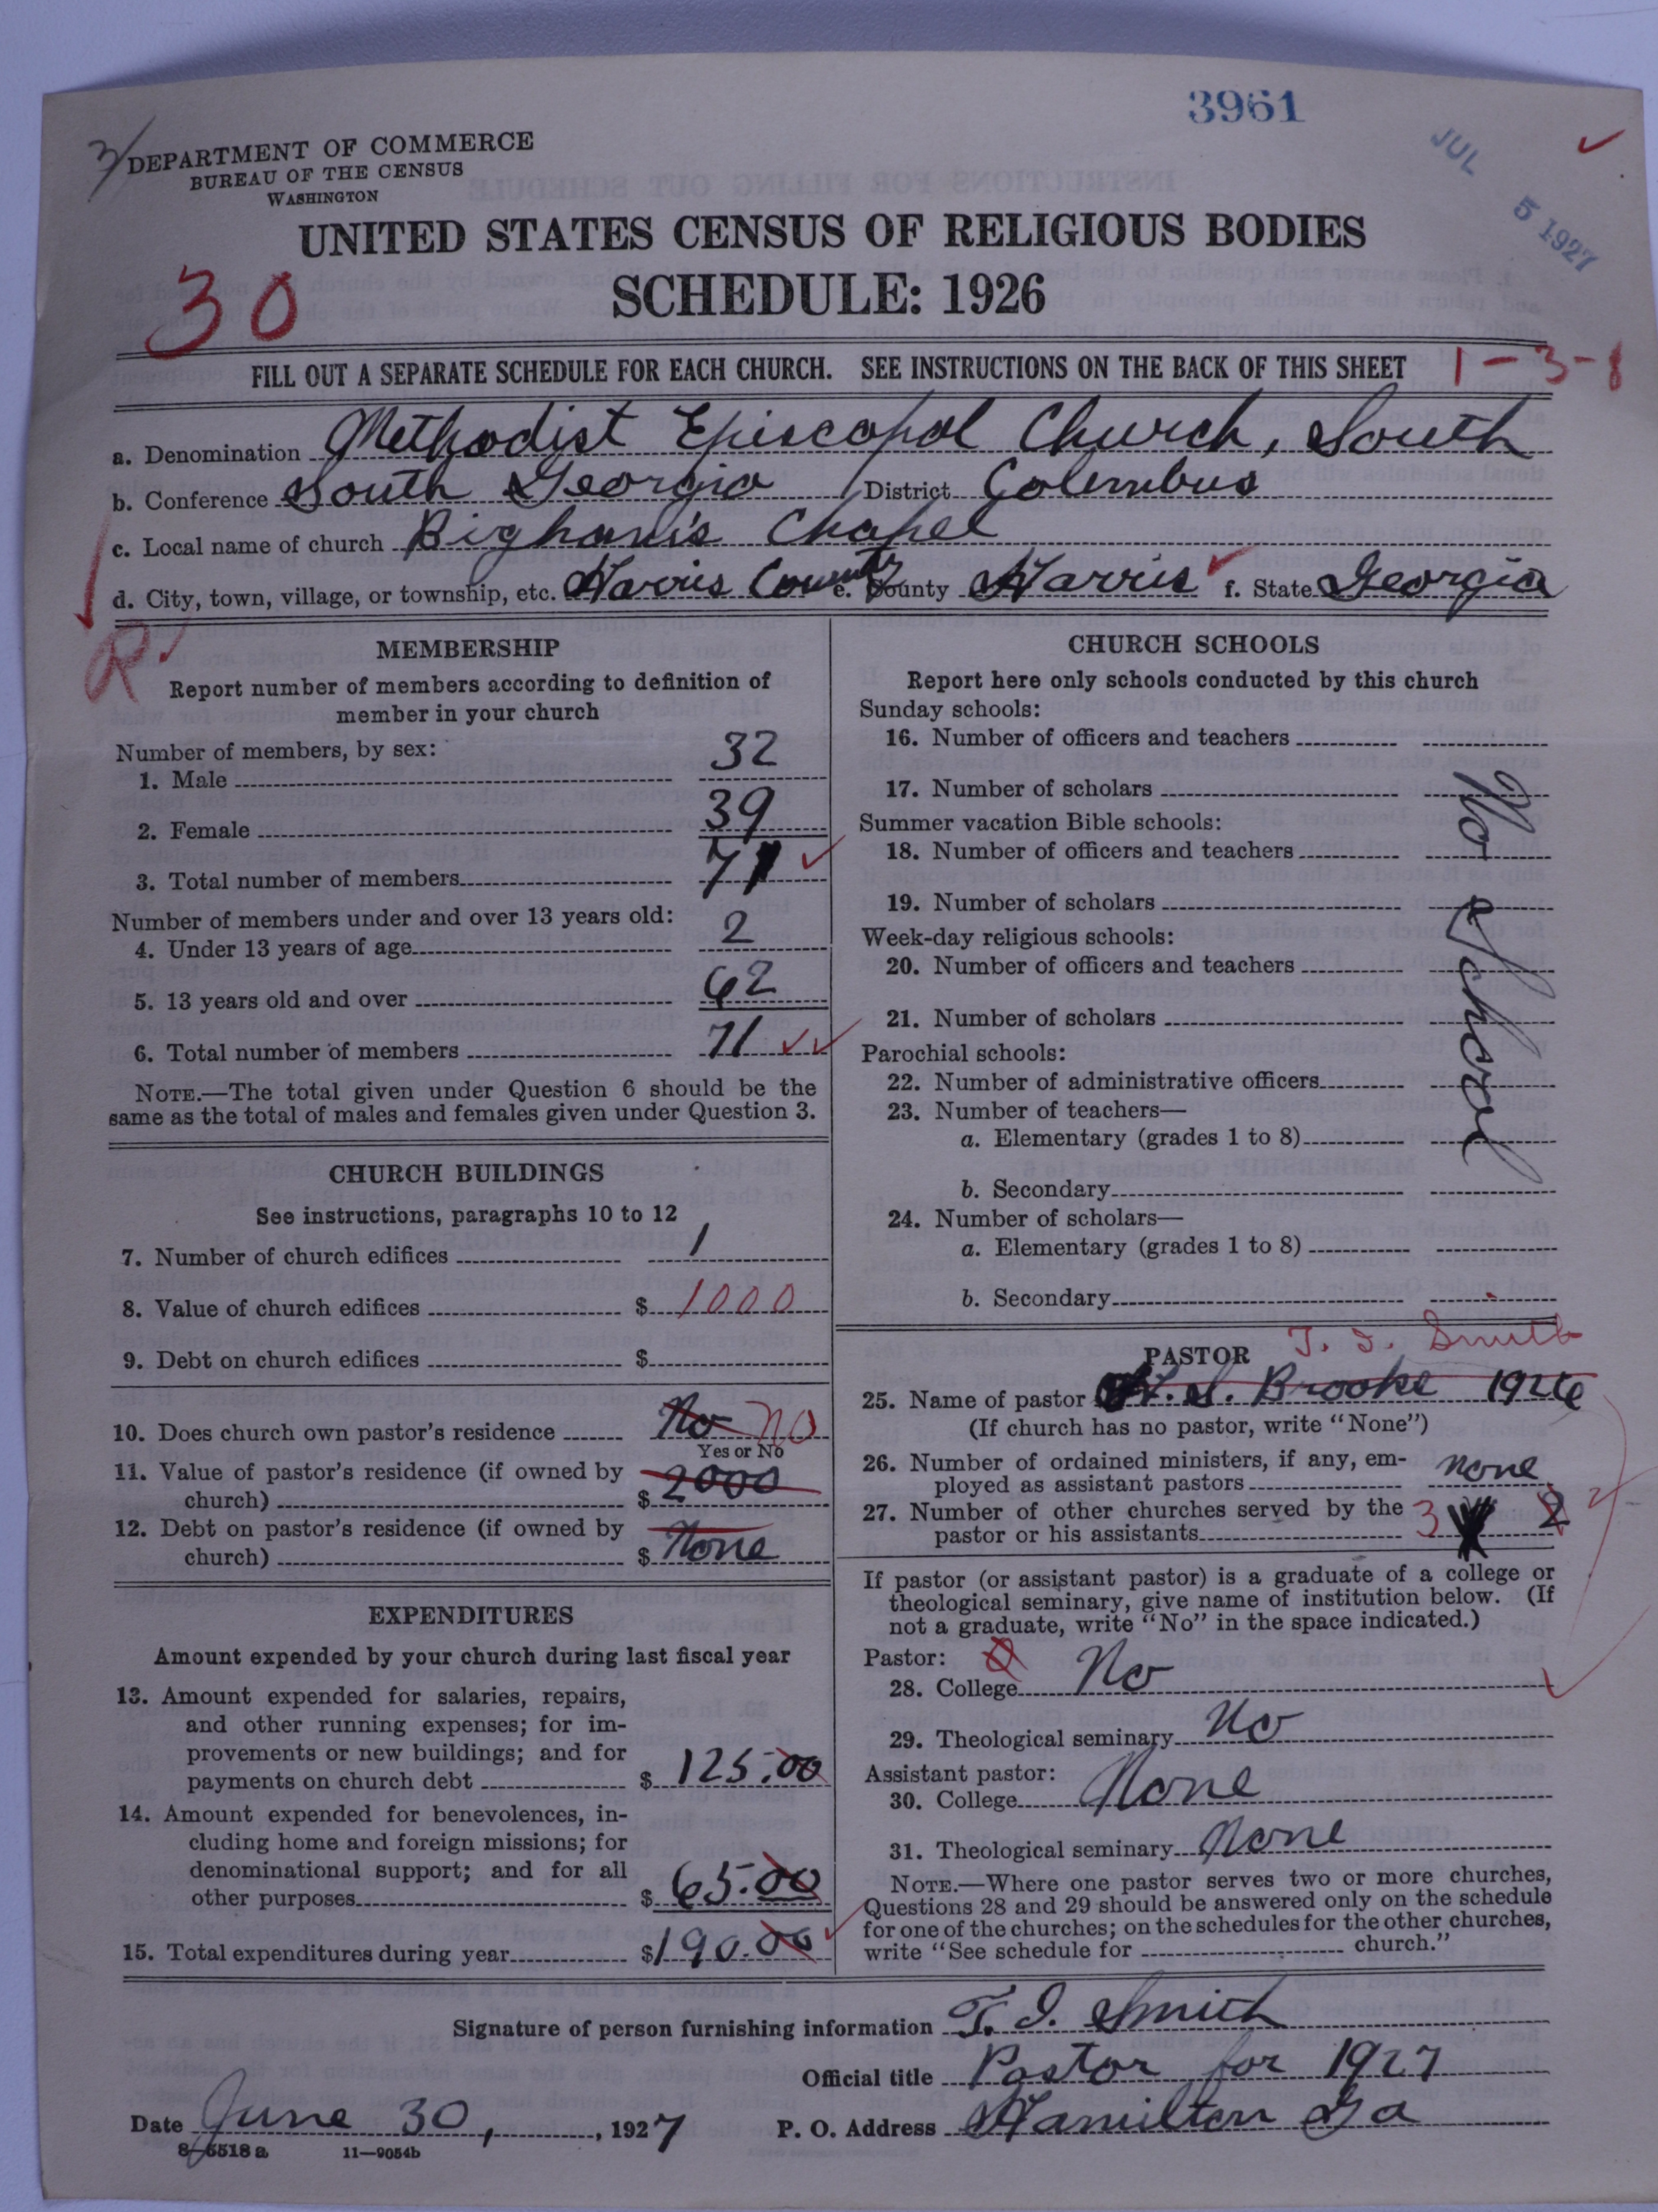 3961
JUL 5 1927
3/
DEPARTMENT OF COMMERCE
BUREAU OF THE CENSUS
WASHINGTON
UNITED STATES CENSUS OF RELIGIOUS BODIES
SCHEDULE: 1926
30
FILL OUT A SEPARATE SCHEDULE FOR EACH CHURCH. SEE INSTRUCTIONS ON THE BACK OF THIS SHEET
1-3-1
a. Denomination Methodist Episcopal Church, South
b. Conference South Georgia District Columbus
c. Local name of church Bigham's Chapel
d. City, town, village, or township, etc. Harris County e. County Harris f. State Georgia
R
MEMBERSHIP
Report number of members according to definition of
member in your church
Number of members, by sex:
1. Male 32
2. Female 39
3. Total number of members 71
Number of members under and over 13 years old:
4. Under 13 years of age 2
5. 13 years old and over 62
6. Total number of members 71
NOTE.—The total given under Question 6 should be the
same as the total of males and females given under Question 3.
CHURCH BUILDINGS
See instructions, paragraphs 10 to 12
7. Number of church edifices 1
8. Value of church edifices $ 1000
9. Debt on church edifices $
10. Does church own pastor's residence No No
Yes or No
11. Value of pastor's residence (if owned by
church) $ 2000
12. Debt on pastor's residence (if owned by
church) $ None
EXPENDITURES
Amount expended by your church during last fiscal year
13. Amount expended for salaries, repairs,
and other running expenses; for im-
provements or new buildings; and for
payments on church debt $ 125.00
14. Amount expended for benevolences, in-
cluding home and foreign missions; for
denominational support; and for all
other purposes $ 65.00
15. Total expenditures during year $ 190.00
CHURCH SCHOOLS
Report here only schools conducted by this church
Sunday schools:
16. Number of officers and teachers
17. Number of scholars
Summer vacation Bible schools:
18. Number of officers and teachers
19. Number of scholars
Week-day religious schools:
20. Number of officers and teachers
21. Number of scholars
Parochial schools:
22. Number of administrative officers
23. Number of teachers—
a. Elementary (grades 1 to 8)
b. Secondary
24. Number of scholars—
a. Elementary (grades 1 to 8)
b. Secondary
No School
PASTOR T. I. Smith
25. Name of pastor Brooke 1926
(If church has no pastor, write "None")
26. Number of ordained ministers, if any, em-
ployed as assistant pastors none
27. Number of other churches served by the
pastor or his assistants 3 2
If pastor (or assistant pastor) is a graduate of a college or
theological seminary, give name of institution below. (If
not a graduate, write "No" in the space indicated.)
Pastor:
28. College No
29. Theological seminary No
Assistant pastor:
30. College None
31. Theological seminary None
NOTE.—Where one pastor serves two or more churches,
Questions 28 and 29 should be answered only on the schedule
for one of the churches; on the schedules for the other churches,
write "See schedule for church."
Signature of person furnishing information T. I. Smith
Official title Pastor for 1927
Date June 30, , 1927 P. O. Address Hamilton Ga
8-5518 a 11—9054b